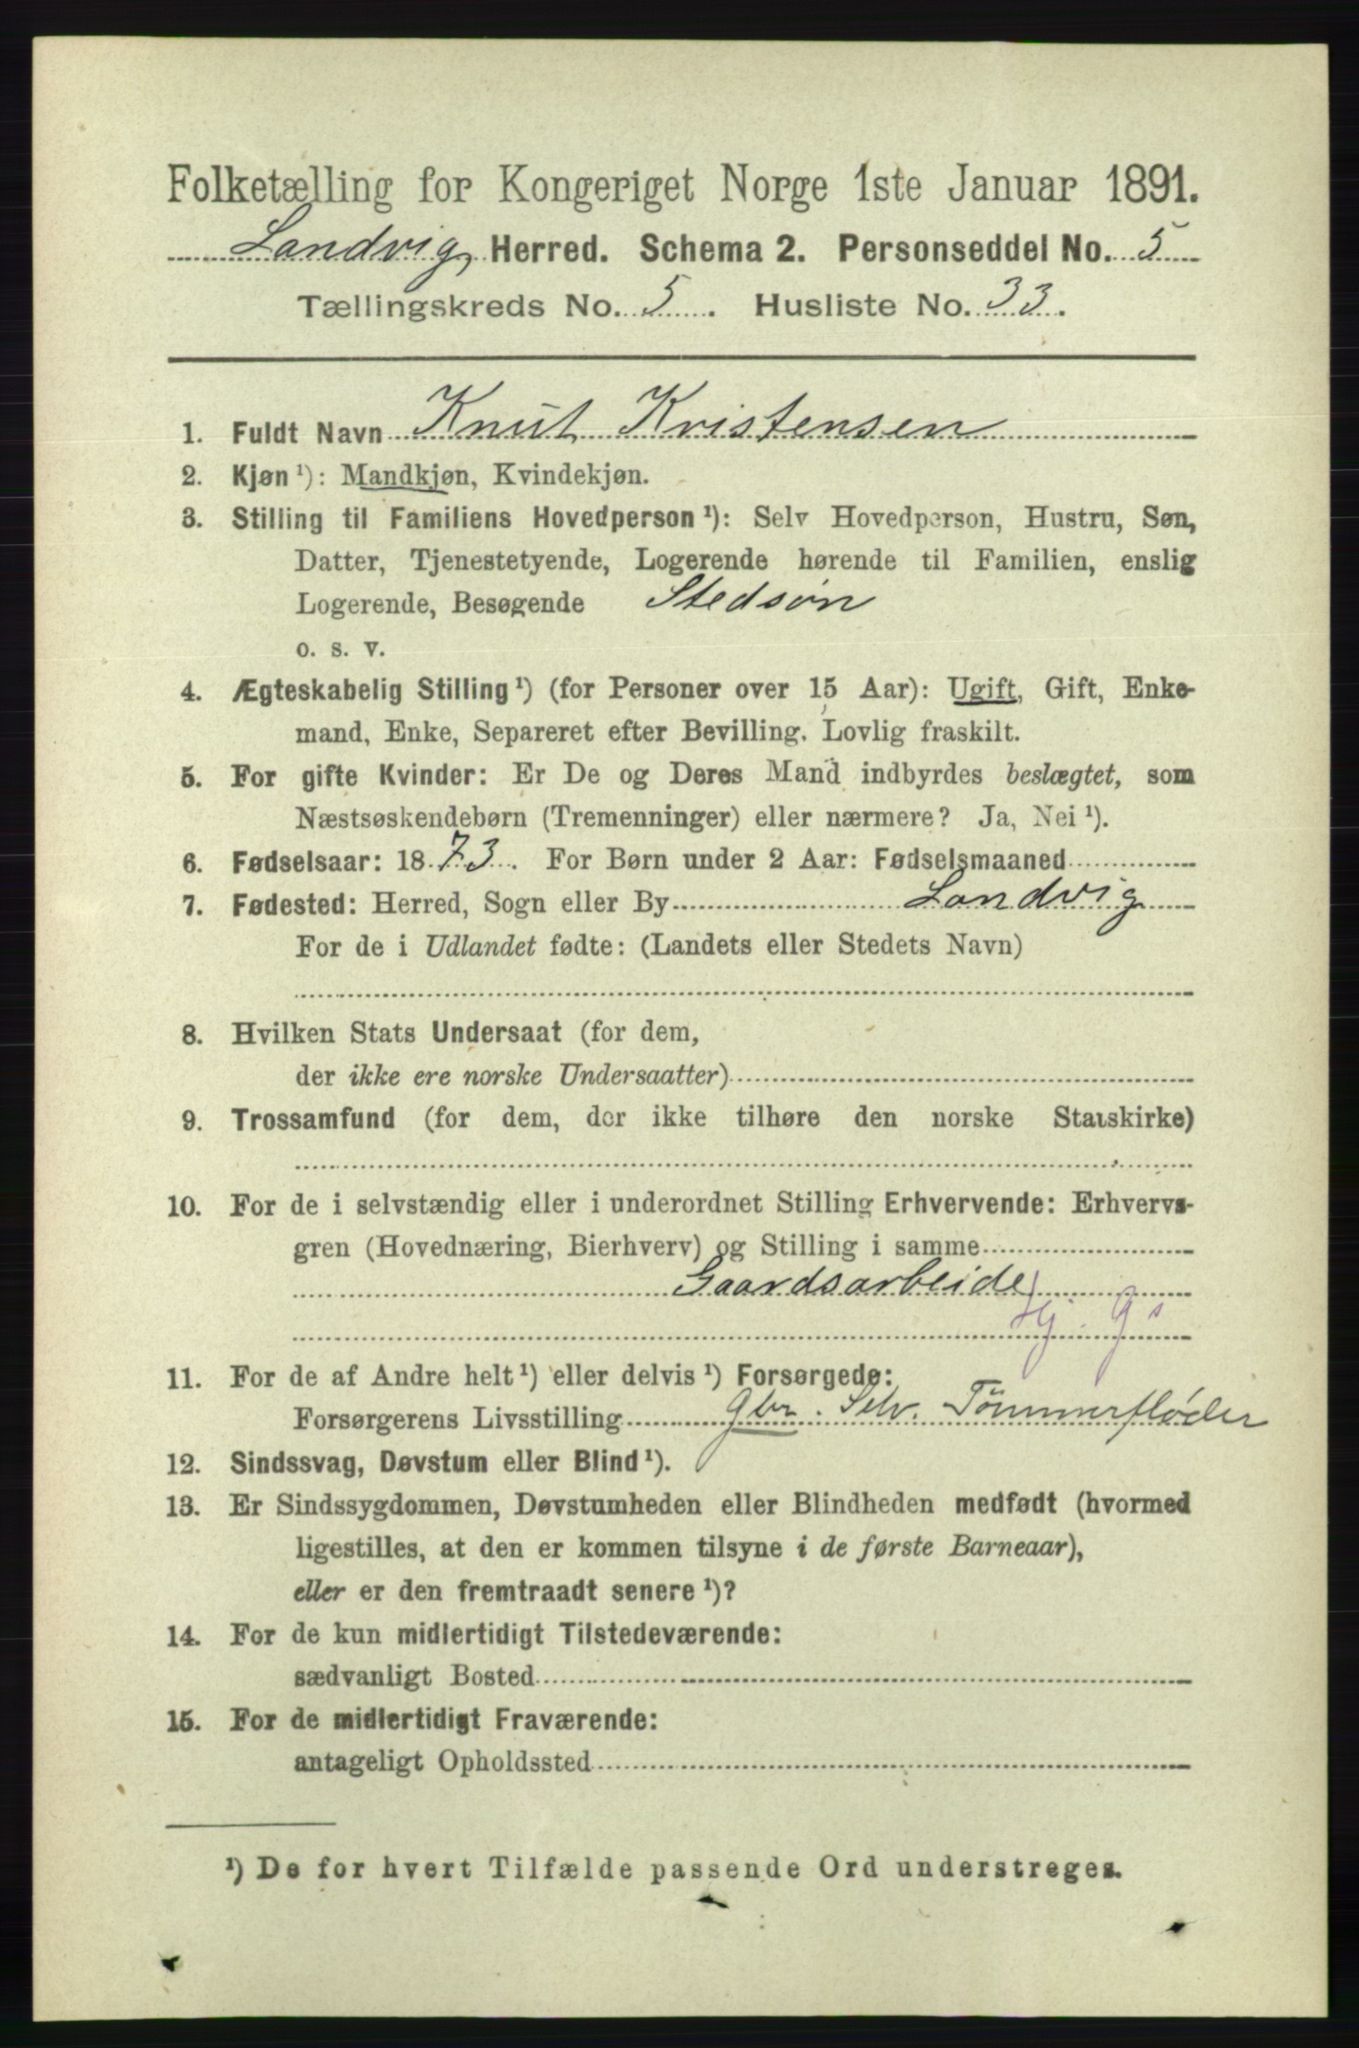 Folketælling for Kongeriget Norge 1ste Januar 1891.
Landvig Herred. Schema 2. Personseddel No. 5
Tællingskreds No. 5. Husliste No. 33.
1. Fuldt Navn Knut Kristensen
2. Kjøn ¹): Mandkjøn, Kvindekjøn.
3. Stilling til Familiens Hovedperson ¹): Selv Hovedperson, Hustru, Søn,
Datter, Tjenestetyende, Logerende hørende til Familien, enslig
Logerende, Besøgende Stedsøn
o. s. v.
4. Ægteskabelig Stilling ¹) (for Personer over 15 Aar): Ugift, Gift, Enke-
mand, Enke, Separeret efter Bevilling. Lovlig fraskilt.
5. For gifte Kvinder: Er De og Deres Mand indbyrdes beslægtet, som
Næstsøskendebørn (Tremenninger) eller nærmere? Ja, Nei ¹).
6. Fødselsaar: 1873. For Børn under 2 Aar: Fødselsmaaned
7. Fødested: Herred, Sogn eller By Landvig
For de i Udlandet fødte: (Landets eller Stedets Navn)
8. Hvilken Stats Undersaat (for dem,
der ikke ere norske Undersaatter)
9. Trossamfund (for dem, der ikke tilhøre den norske Statskirke)
10. For de i selvstændig eller i underordnet Stilling Erhvervende: Erhvervs-
gren (Hovednæring, Bierhverv) og Stilling i samme
Gaardsarbeide
Hj. Gs
11. For de af Andre helt ¹) eller delvis ¹) Forsørgede:
Forsørgerens Livsstilling Gbr. Selv. Tömmerfløder
12. Sindssvag, Døvstum eller Blind ¹).
13. Er Sindssygdommen, Døvstumheden eller Blindheden medfødt (hvormed
ligestilles, at den er kommen tilsyne i de første Barneaar),
eller er den fremtraadt senere ¹)?
14. For de kun midlertidigt Tilstedeværende:
sædvanligt Bosted
15. For de midlertidigt Fraværende:
antageligt Opholdssted
¹) De for hvert Tilfælde passende Ord understreges.